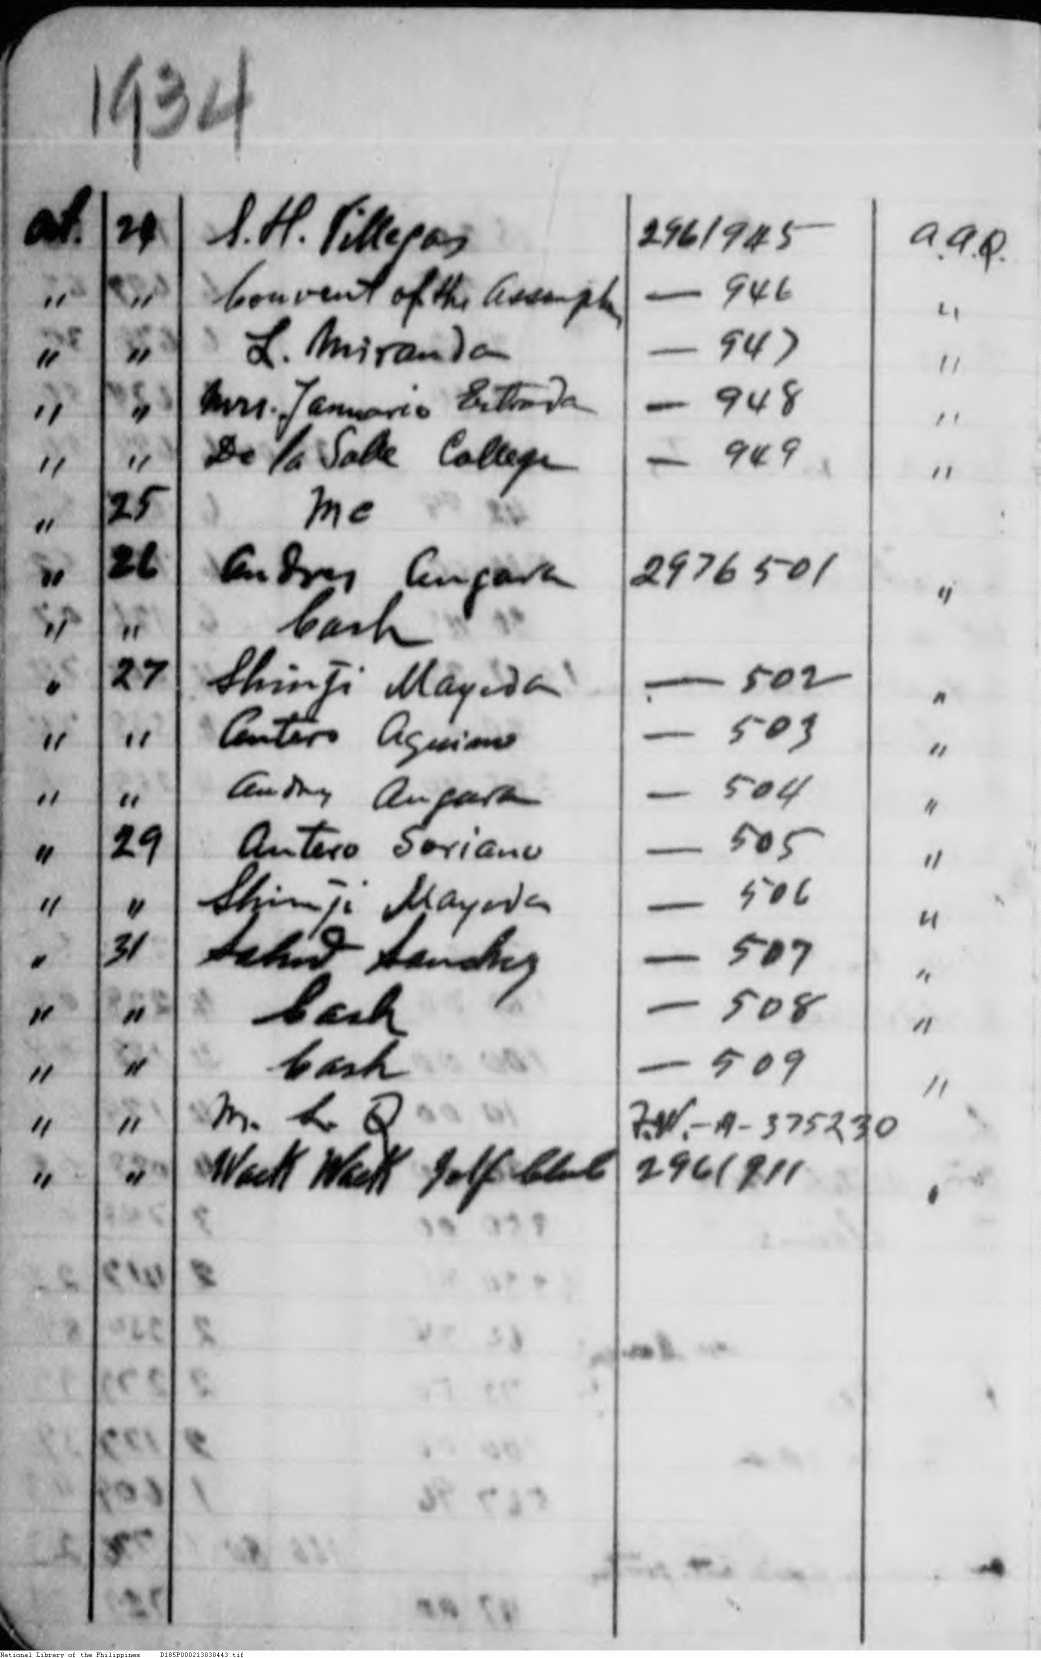 1934
Oct. 24 S. H. Villegas 2961945 — A.A.Q.
" " Convent of the Assumption — 946 "
" " L. Miranda — 947 "
" " Mrs. Januario Estrada — 948 "
" " De la Salle College — 949 "
" 25 Me
" 26 Andres Angara 2976501 "
" " Cash
" 27 Shinji Mayeda — 502 "
" " Antero Aquino — 503 "
" " Andres Angara — 504 "
" 29 Antero Soriano — 505 "
" " Shinji Mayeda — 506 "
" 31 Sanchez — 507 "
" " Cash — 508 "
" " Cash — 509 "
" " M. L. Q F.W.-A-375230
" " Wack Wack Golf Club 2961911 "
National Library of the Philippines D185P000213838443.tif